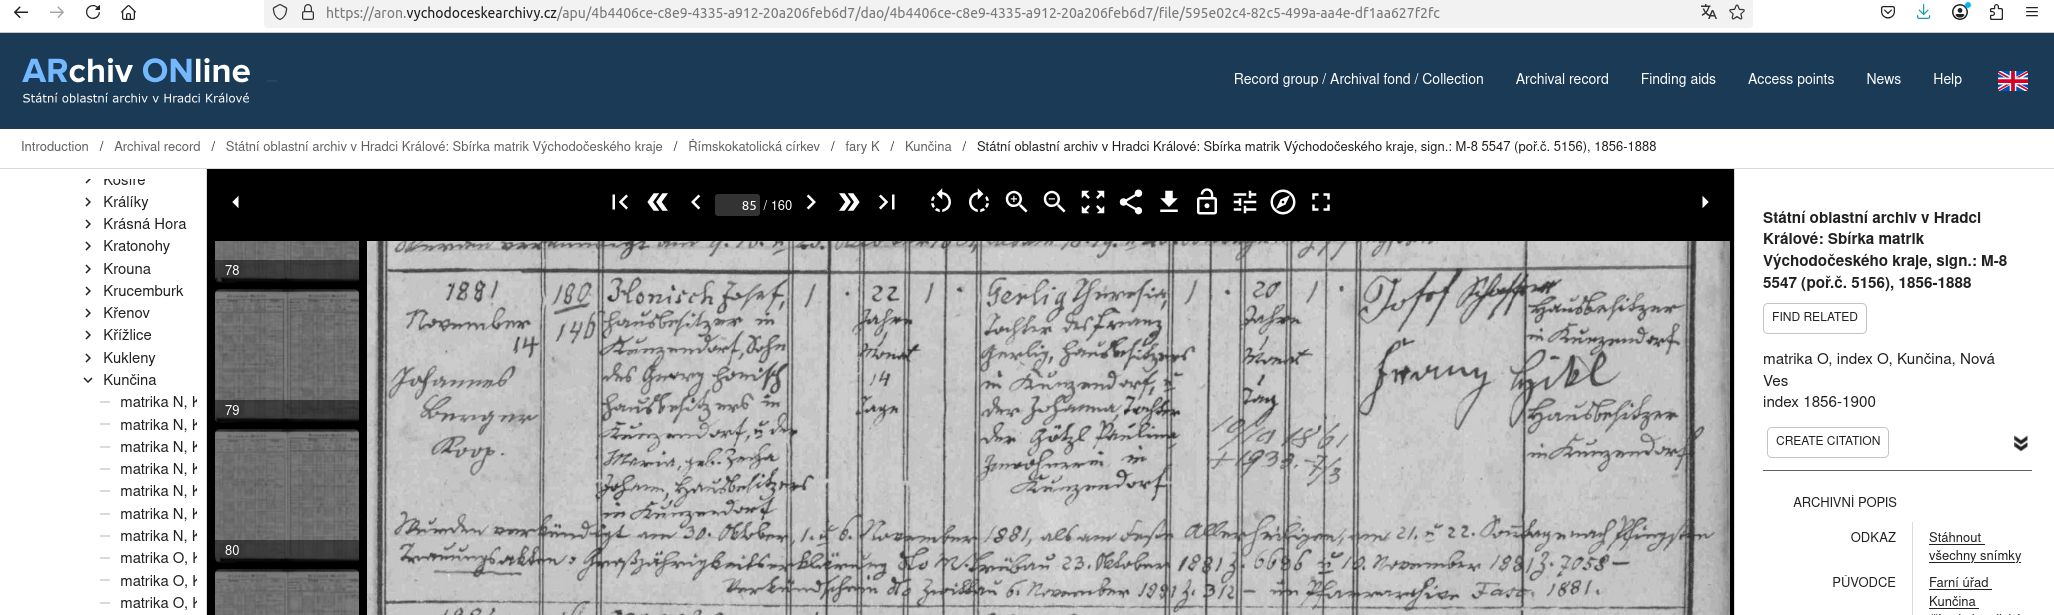 https://aron.vychodoceskearchivy.cz/apu/4b4406ce-c8e9-4335-a912-20a206feb6d7/dao/4b4406ce-c8e9-4335-a912-20a206feb6d7/file/595e02c4-82c5-499a-aa4e-df1aa627f2fc
ARchiv ONline
Státní oblastní archiv v Hradci Králové
Record group / Archival fond / Collection
Archival record
Finding aids
Access points
News
Help
Introduction / Archival record / Státní oblastní archiv v Hradci Králové: Sbírka matrik Východočeského kraje / Římskokatolická církev / fary K / Kunčina / Státní oblastní archiv v Hradci Králové: Sbírka matrik Východočeského kraje, sign.: M-8 5547 (poř.č. 5156), 1856-1888
Košíře
Králíky
Krásná Hora
Kratonohy
Krouna
Krucemburk
Křenov
Křížlice
Kukleny
Kunčina
matrika N, K
matrika N, K
matrika N, K
matrika N, K
matrika N, K
matrika N, K
matrika N, K
matrika O, K
matrika O, K
matrika O, K
85 / 160
78
79
80
1881
November
14
Johannes
Berger
Koop.
180
140
Honisch Josef,
Hausbesitzer in
Kunzendorf, Sohn
des Georg Honisch
Hausbesitzers in
Kunzendorf, u. der
Maria, geb. Zecha
Johann, Hausbesitzers
in Kunzendorf
1
22
Jahre
1
Monat
14
Tage
1
Gerlig Theresia,
Tochter des Franz
Gerlig, Hausbesitzers
in Kunzendorf, u
der Johanna Tochter
der Götzl Paulina
Inwohnerin in
Kunzendorf
1
20
Jahre
1
Monat
1
Tag
1
+ 1938. 7/3
Josef
Hausbesitzer
in Kunzendorf
Franz
Hausbesitzer
in Kunzendorf
Wurden verkündigt am 30. Oktober, 1. u 6. November 1881, als am Feste Allerheiligen, am 21. u 22. Sonntage nach Pfingsten
Trauungsakten: Großjährigkeitserklärung dto M. Trübau 23. Oktober 1881 Z. 6696 u 10. November 1881 Z. 7058 –
Verkündschein dto Zwittau 6. November 1881 Z. 312 – im Pfarrarchive Fasc. 1881.
Státní oblastní archiv v Hradci
Králové: Sbírka matrik
Východočeského kraje, sign.: M-8
5547 (poř.č. 5156), 1856-1888
FIND RELATED
matrika O, index O, Kunčina, Nová
Ves
index 1856-1900
CREATE CITATION
ARCHIVNÍ POPIS
ODKAZ
Stáhnout
všechny snímky
PŮVODCE
Farní úřad
Kunčina